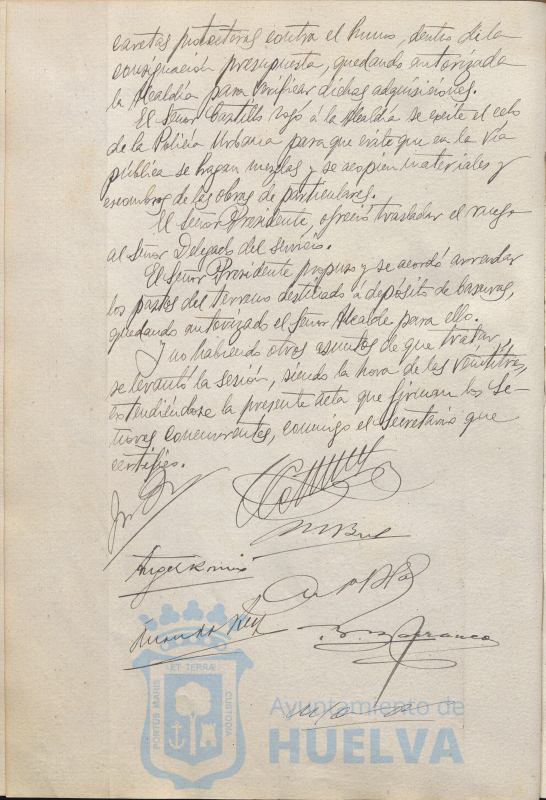 caretas protectoras contra el humo, dentro de la
consignación presupuesta, quedando autorizada
la Alcaldía para verificar dichas adquisiciones.
El Señor Castillo rogó á la Alcaldía se excite el celo
de la Policía Urbana para que evite que en la vía
pública se hagan mezclas y se acopien materiales y
escombros de las obras de particulares.
El Señor Presidente, ofreció trasladar el ruego
al Señor Delegado del servicio.
El Señor Presidente propuso y se acordó arrendar
los pastos del terreno destinado a depósito de basuras,
quedando autorizado el Señor Alcalde para ello.
Y no habiendo otros asuntos de que tratar,
se levantó la sesión, siendo la hora de las veintitres,
extendiéndose la presente acta que firman los Se-
ñores concurrentes, conmigo el Secretario que
certifico.
ET TERRÆ
PORTUS MARIS
CUSTODIA
Ayuntamiento de
HUELVA